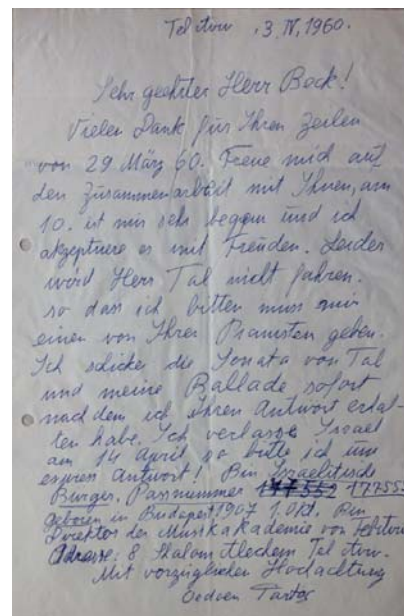 Tel Aviv, 3.IV,1960.
Sehr geehrter Herr Beck!
Vielen Dank für Ihren Zeilen
von 29 März 60. Freue mich auf
den Zusammenarbeit mit Ihnen, am
10. ist mir sehr beqem und ich
akzeptiere es mit Freuden. Leider
wird Herr Tal nicht fahren.
so dass ich bitten muss mir
einen von Ihrer Pianisten geben.
Ich schicke die Sonata von Tal
und meine Ballade sofort
nach dem ich Ihren Antwort erhal-
ten habe. Ich verlasse Israel
am 14 April so bitte ich um
express Antwort! Bin Israelitisch
Bürger, Passnummer 177552 17755
geboren in Budapest 1907 1. Okt. Bin
Direktor der Musikakademie von Tel Aviv
Adresse: 8 Shalom Alechem Tel Aviv.
Mit vorzüglichen Hochachtung
Oedoen Partos